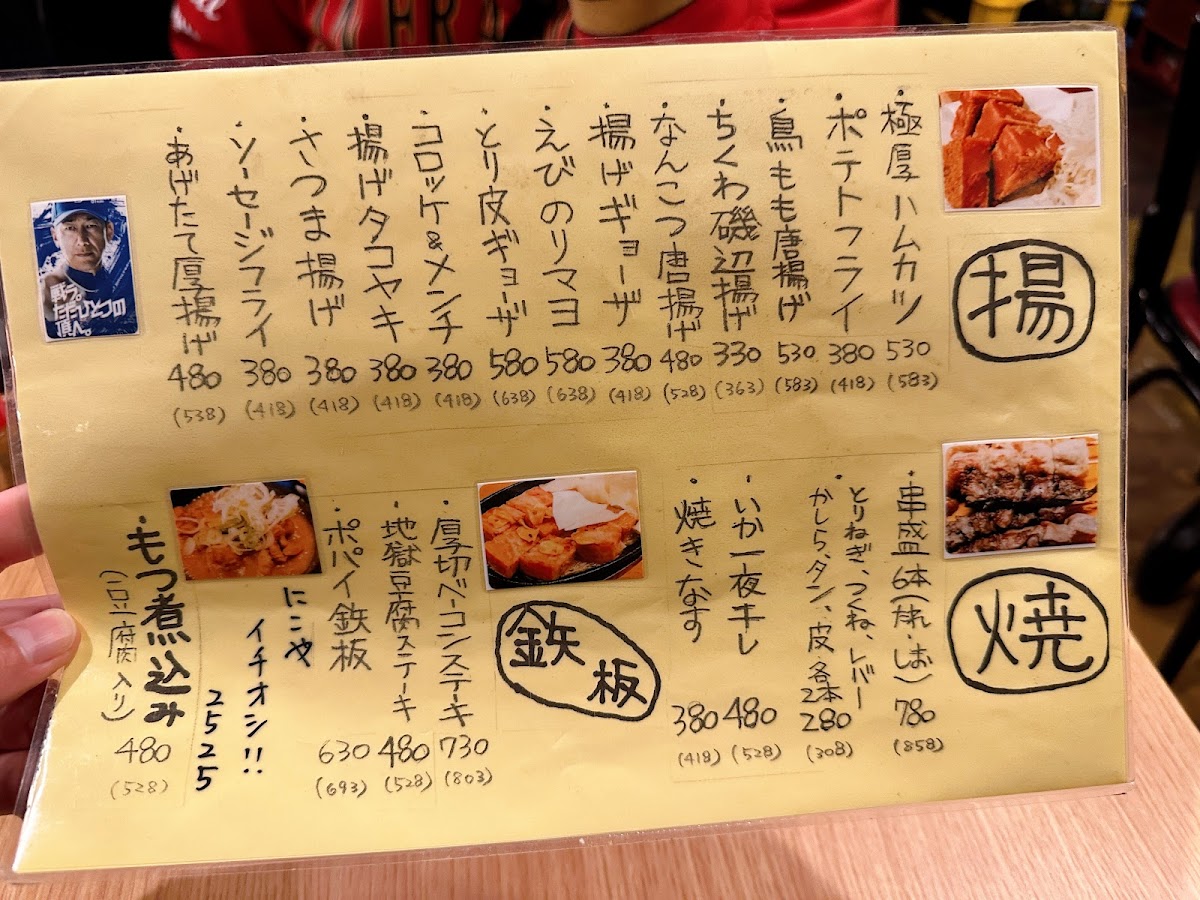 揚
・極厚ハムカツ 530 (583)
・ポテトフライ 380 (418)
・鳥もも唐揚げ 530 (583)
・ちくわ磯辺揚げ 330 (363)
・なんこつ唐揚げ 480 (528)
・揚げギョーザ 380 (418)
・えびのリマヨ 580 (638)
・とり皮ギョーザ 580 (638)
・コロッケ&メンチ 380 (418)
・揚げタコヤキ 380 (418)
・さつま揚げ 380 (418)
・ソーセージフライ 380 (418)
・あげたて厚揚げ 480 (538)
戦う。
ただひとつの
頂へ。
焼
・串盛6本(たれ・しお) 780 (858)
・とりねぎ、つくね、レバー
かしら、タン、皮 各2本 280 (308)
・いか一夜干し 480 (528)
・焼きなす 380 (418)
鉄板
・厚切ベーコンステーキ 730 (803)
・地獄豆腐ステーキ 480 (528)
・ポパイ鉄板 630 (693)
にこや
イチオシ!!
2525
・もつ煮込み 480 (528)